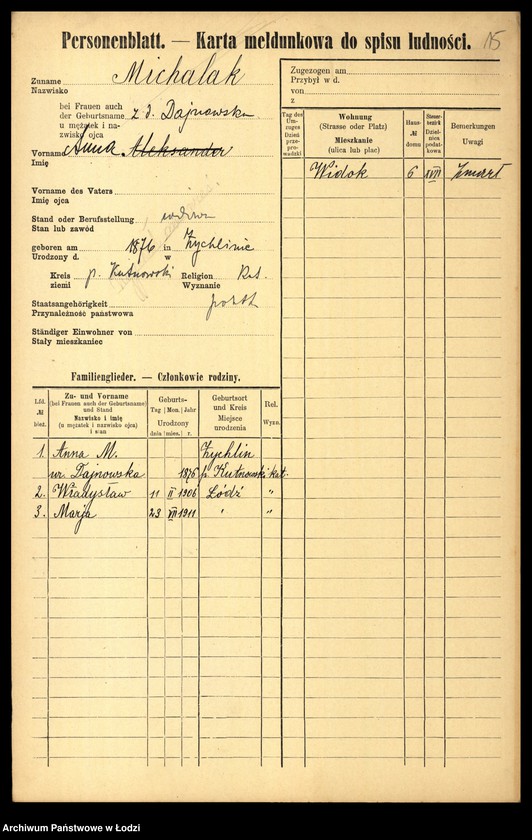 Personenblatt. — Karta meldunkowa do spisu ludności. 15
Zuname Michalak
Nazwisko
bei Frauen auch
der Geburtsname z d. Dajnowska
u mężatek i na-
zwisko ojca
Vorname Anna Aleksander
Imię
Vorname des Vaters
Imię ojca
Stand oder Berufsstellung wdowa
Stan lub zawód
geboren am 1876 in Żychlinie
Urodzony d. w
Kreis p. Kutnowski Religion
ziemi Wyznanie
Staatsangehörigkeit
Przynależność państwowa
Ständiger Einwohner von
Stały mieszkaniec
Zugezogen am
Przybył w d.
von
z
Tag des Um-zuges Dzień prze-prowadzki
Wohnung
(Strasse oder Platz)
Mieszkanie
(ulica lub plac)
Haus-
№
domu
Steuer-
bezirk
Dziel-
nica
podat-
kowa
Bemerkungen
Uwagi
Widok 6 XVII zmarł
Familienglieder. — Członkowie rodziny.
Lfd.
№
bież.
Zu- und Vorname
(bei Frauen auch der Geburtsname)
und Stand
Nazwisko i imię
(u mężatek i nazwisko ojca)
i stan
Geburts-
Tag Mon. Jahr
Urodzony
dnia mies. r.
Geburtsort
und Kreis
Miejsce
urodzenia
Rel.
Wyzn.
1. Anna M. Żychlin
ur. Dajnowska 1876 p. Kutnowski kat.
2. Władysław 11 II 1906 Łódź "
3. Marja 23 VII 1911 " "
Archiwum Państwowe w Łodzi